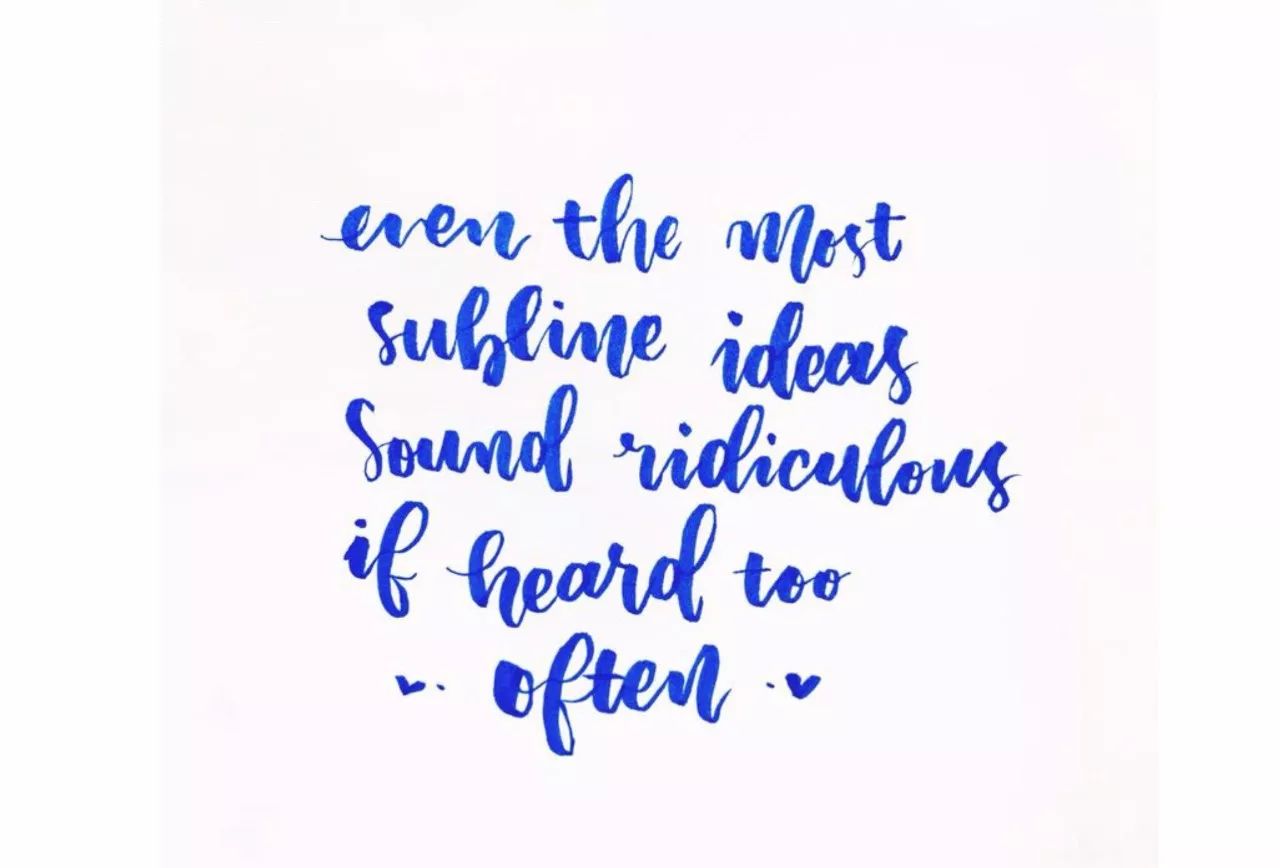 even the most
subline ideas
Sound ridiculous
if heard too
often